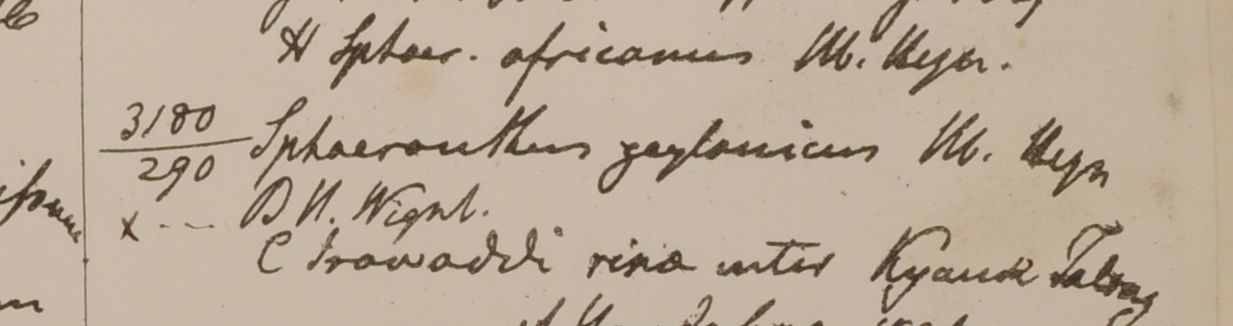 H Sphaer. africanus Hb. Heyn.
3180
290
Sphaeranthus zeylanicus Hb. Heyn
x --- B H. Wight.
C Irawaddi ripa inter Kyauk Talong